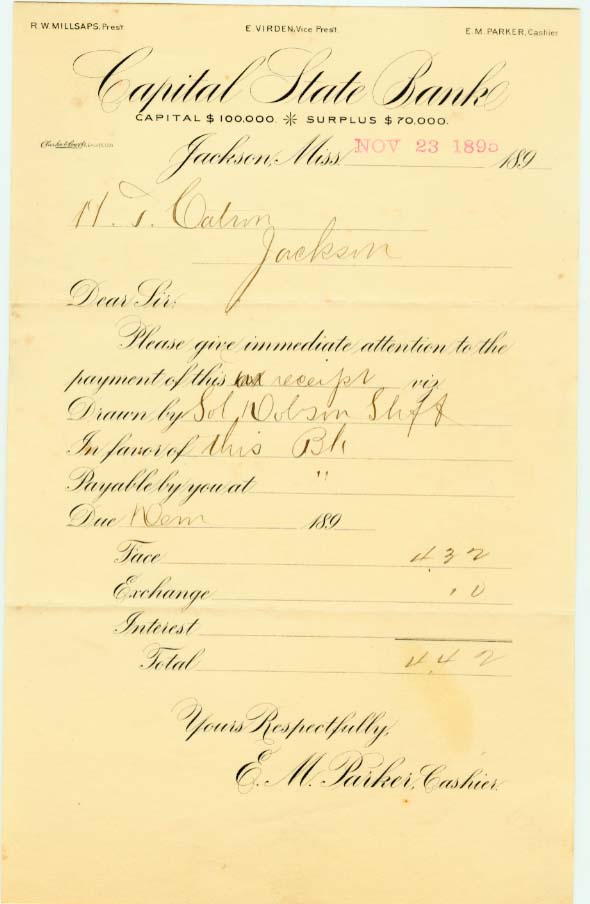 R. W. MILLSAPS, Prest. E. VIRDEN, Vice Prest. E. M. PARKER, Cashier
Capital State Bank
CAPITAL $100,000. SURPLUS $70,000.
Jackson, Miss. NOV 23 1895 189
H. T.
Jackson
Dear Sir:
Please give immediate attention to the
payment of this receipt viz
Drawn by Sol Dobson Shff
In favor of this Bk
Payable by you at "
Due Dem 189
Face 4 32
Exchange . 10
Interest
Total 4 42
Yours Respectfully,
E. M. Parker, Cashier.